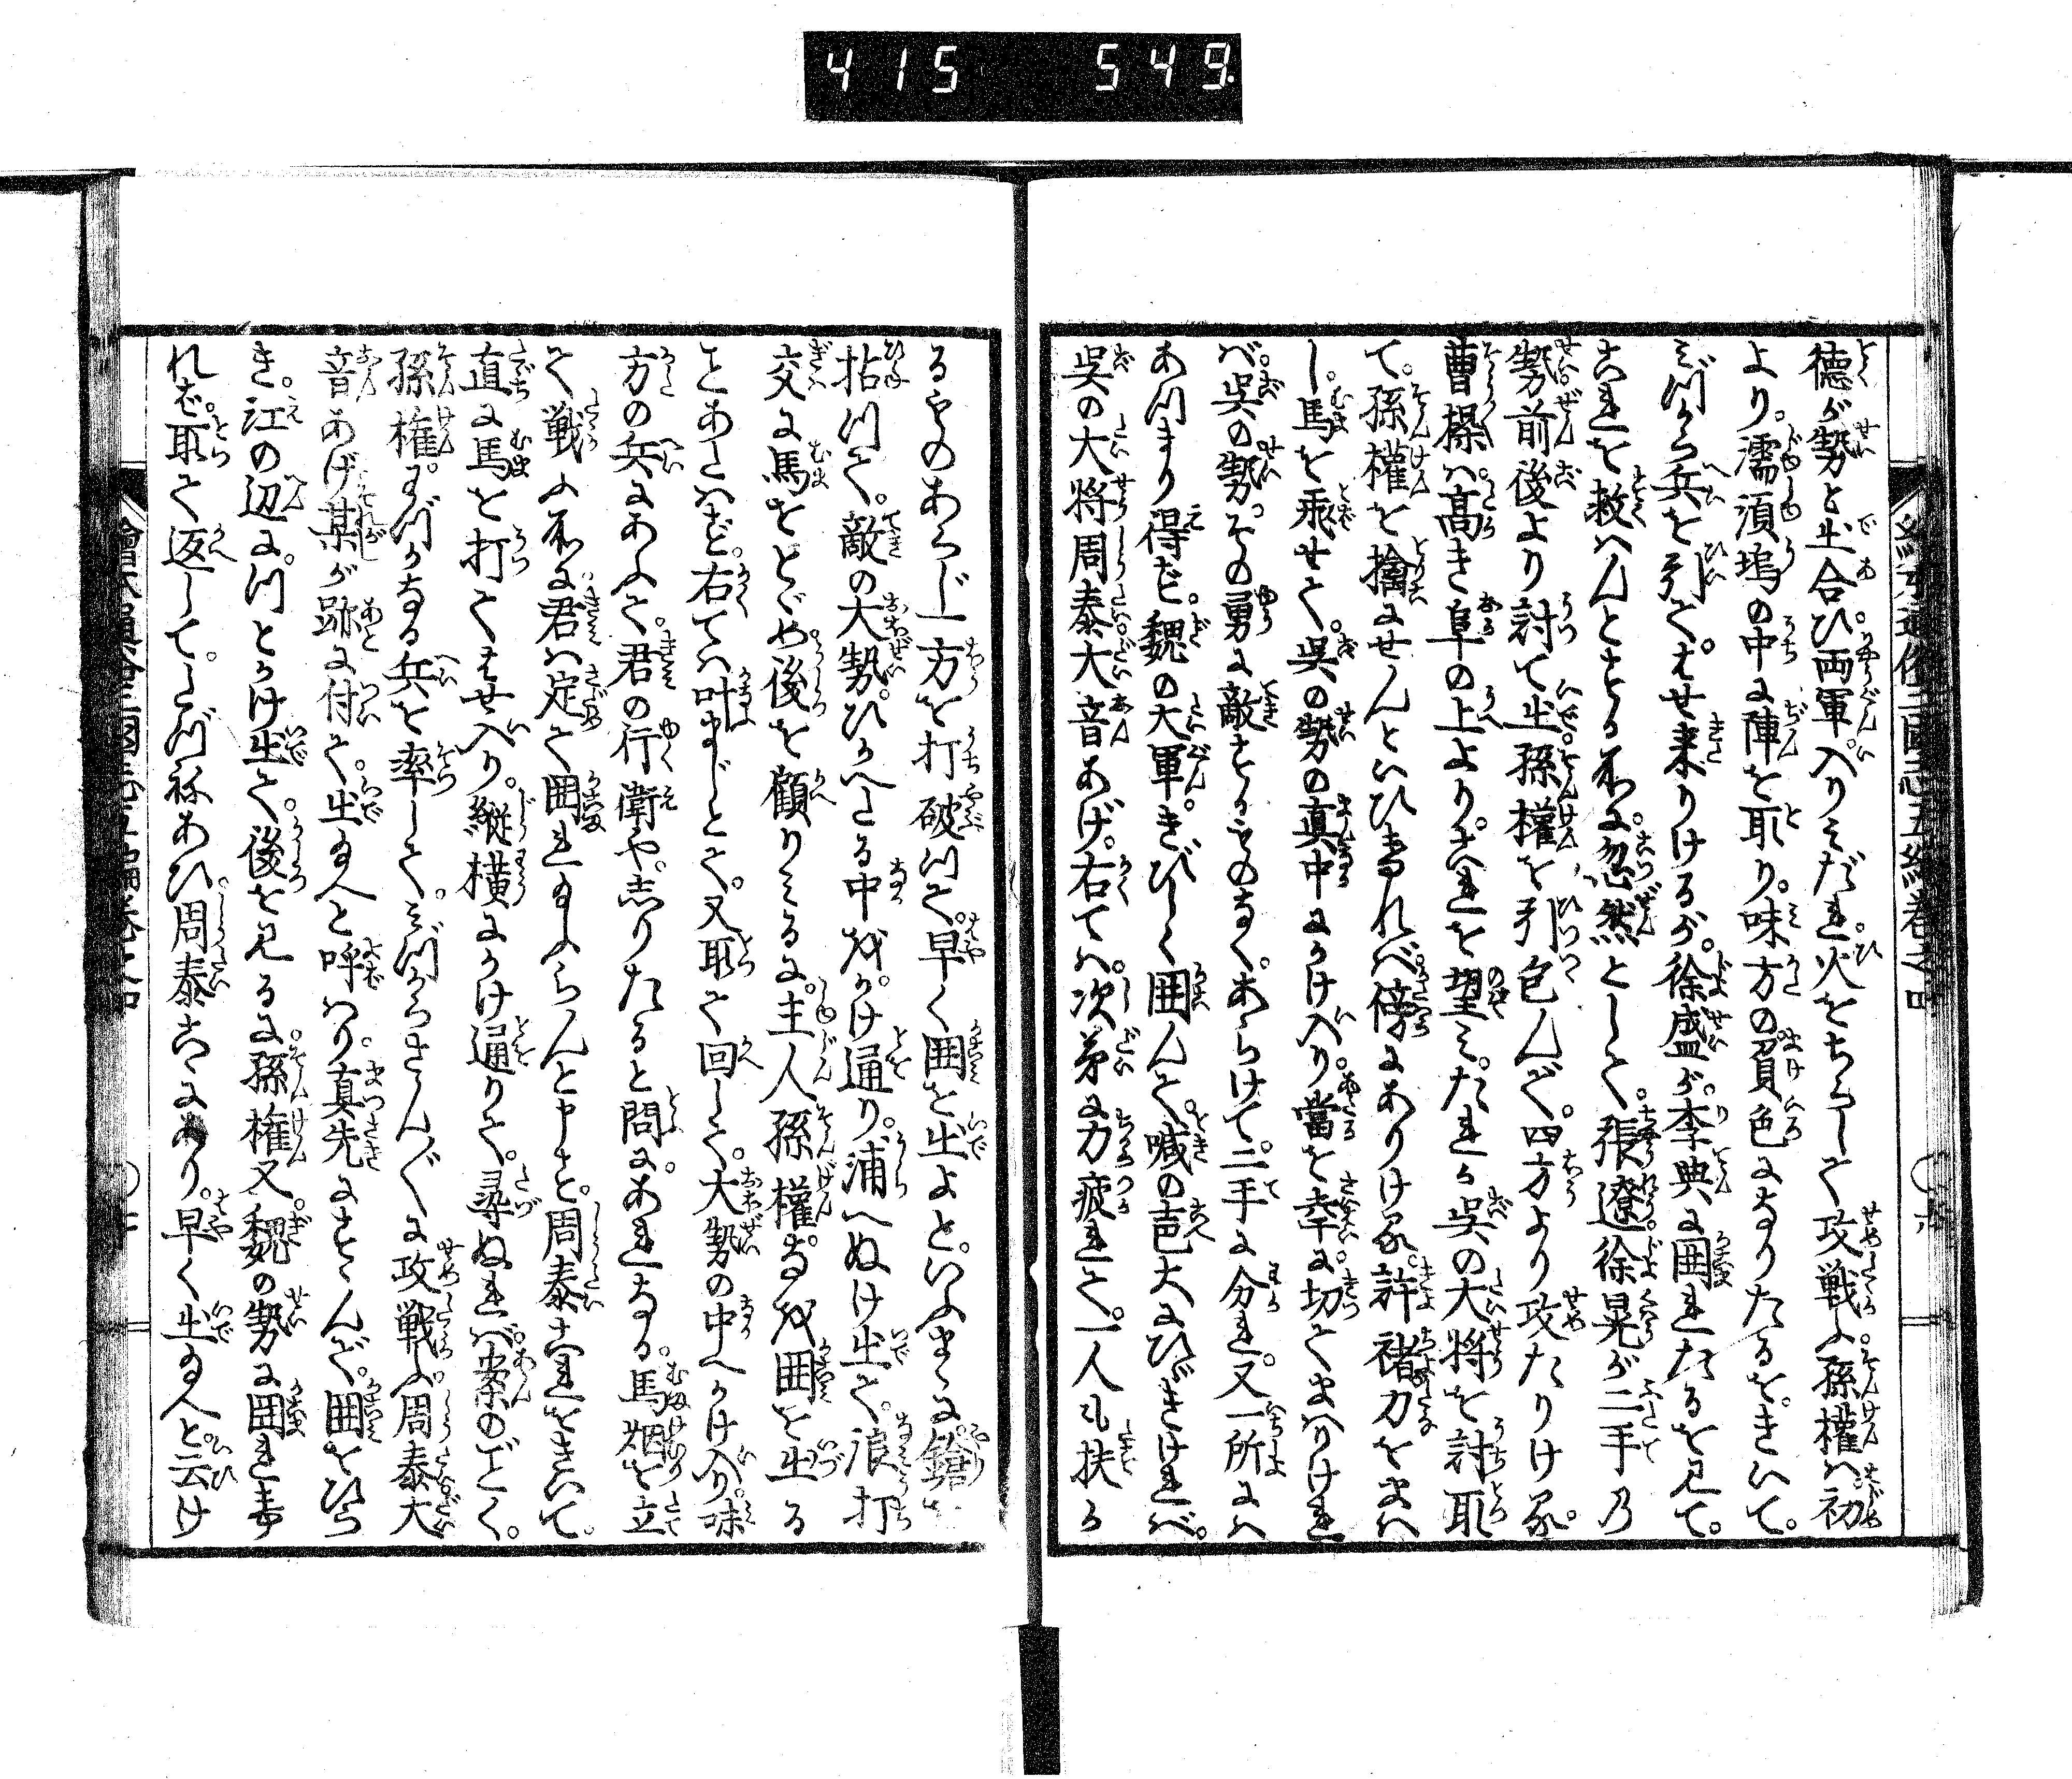 415 549
徳が勢と出合ひ両軍入りみだれ火をちらして攻戦ふ孫權ハ初
より。濡須塢の中に陣を取り。味方の負色になりたるをきいて。
みづから兵を引て。はせ来りけるが。徐盛が李典に囲れたるを見て。
これを救ハんとする所に。忽然として。張遼徐晃が二手乃
勢前後より討て出。孫權を引包んで。四方より攻たりけり。
曹操ハ高き阜の上より。これを望み。たれか呉の大将を討取
て。孫權を擒にせんといひければ。傍にありける許褚刀をまハ
し。馬を乗せて。呉の勢の真中にかけ入り。當を幸に。切てまハりけれ
ば。呉の勢。その勇に敵するものなく。あらけて。二手に分れ。又一所には
あつまり得ず。魏の大軍。きびしく囲んで。喊の声大にひゞきければ。
呉の大将周泰大音あげ。右てハ。次第に力疲れて。一人も扶か
るものあらじ一方を打破つて。早く囲を出よと。いふまゝに。鎗を
拈つて。敵の大勢。ひかへたる中を。かけ通り。浦へぬけ出て。浪打
交に馬をとゞめ後を顧りみるに。主人孫權。なを囲を出る
とあたハず。右てハ叶まじとて。又取て回して。大勢の中へかけ入り。味
方の兵にあふて。君の行衛や。志りたると問に。あれなる。馬烟を立
て戦ふ所に。君ハ定て囲れ玉ふらんと申す。周泰これをきいて。
直に馬を打てはせ入り。縦横にかけ通りて。尋ぬれば。案のごとく。
孫權。わづかなる兵を率して。みづからさんざんに攻戦ふ。周泰大
音あげ某が跡に付て。出玉へと呼ハり。真先にすゝんで。囲をひら
き。江の辺に。つとかけ出て。後を見るに。孫権又。魏の勢に囲れ来
れず。取て返して。たづねあひ。周泰こゝにあり。早く出玉へと云け